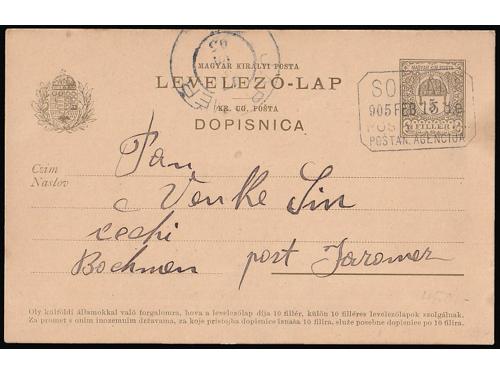 MAGYAR KIRÁLYI POSTA
LEVELEZŐ-LAP
KR. UG. POŠTA
DOPISNICA
MAGYAR KIR. POSTA
905 FEB 15
FILLÉR
POŠTAN. AGENCIJA
Czim
Naslov
Pan
Venke Sin
cechi
Bochmen post Jaromer
Oly külföldi államokkal való forgalomra, hova a levelezőlap díja 10 fillér, külön 10 filléres levelezőlapok szolgálnak.
Za promet s onim inozemnim državama, za koje pristojba dopisnice iznaša 10 filira, služe posebne dopisnice po 10 filira.